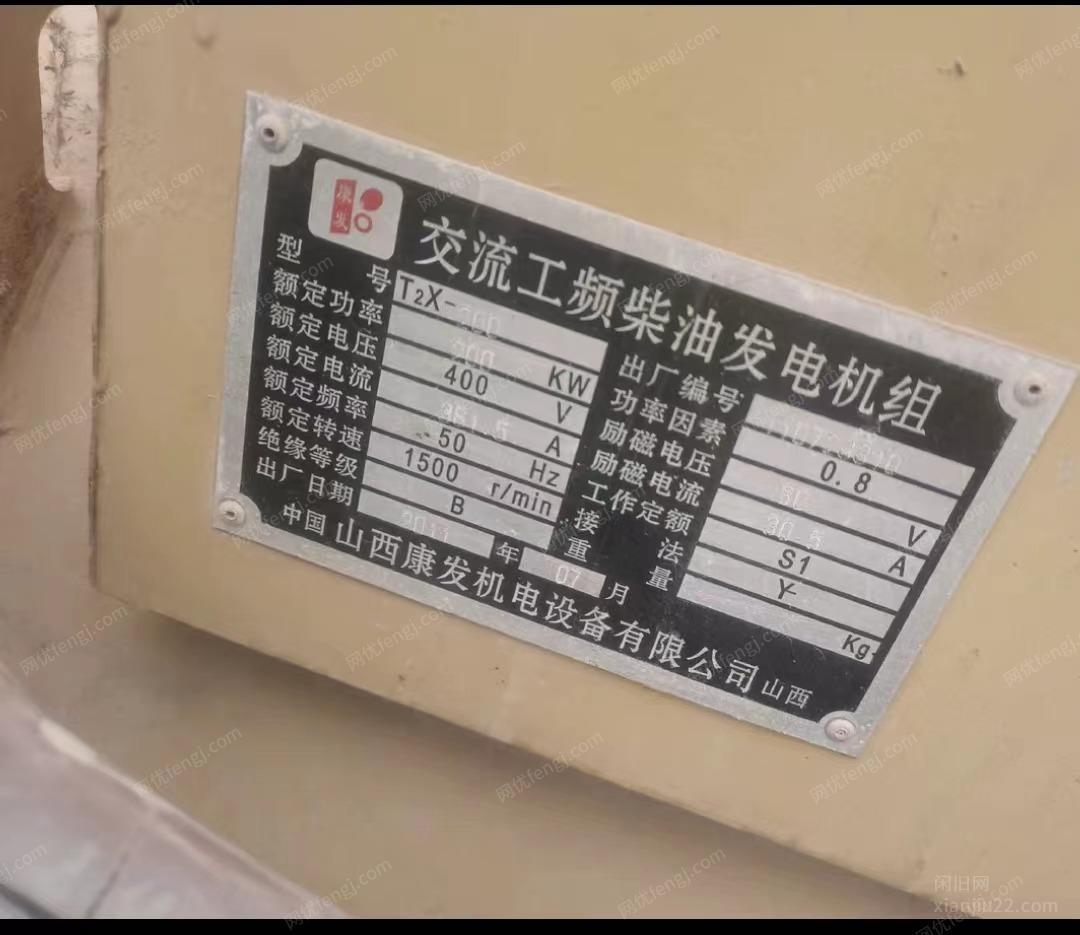 康发
交流工频柴油发电机组
型号 T2X-200
额定功率 200 KW
额定电压 400 V
额定电流 A
额定频率 50 Hz
额定转速 1500 r/min
绝缘等级 B
出厂日期 年 07 月
出厂编号
功率因素 0.8
励磁电压 V
励磁电流 30.5 A
工作定额 S1
接法 Y
重量 Kg
中国山西康发机电设备有限公司 山西
网优fengj.com
闲旧网
xianjiu22.com